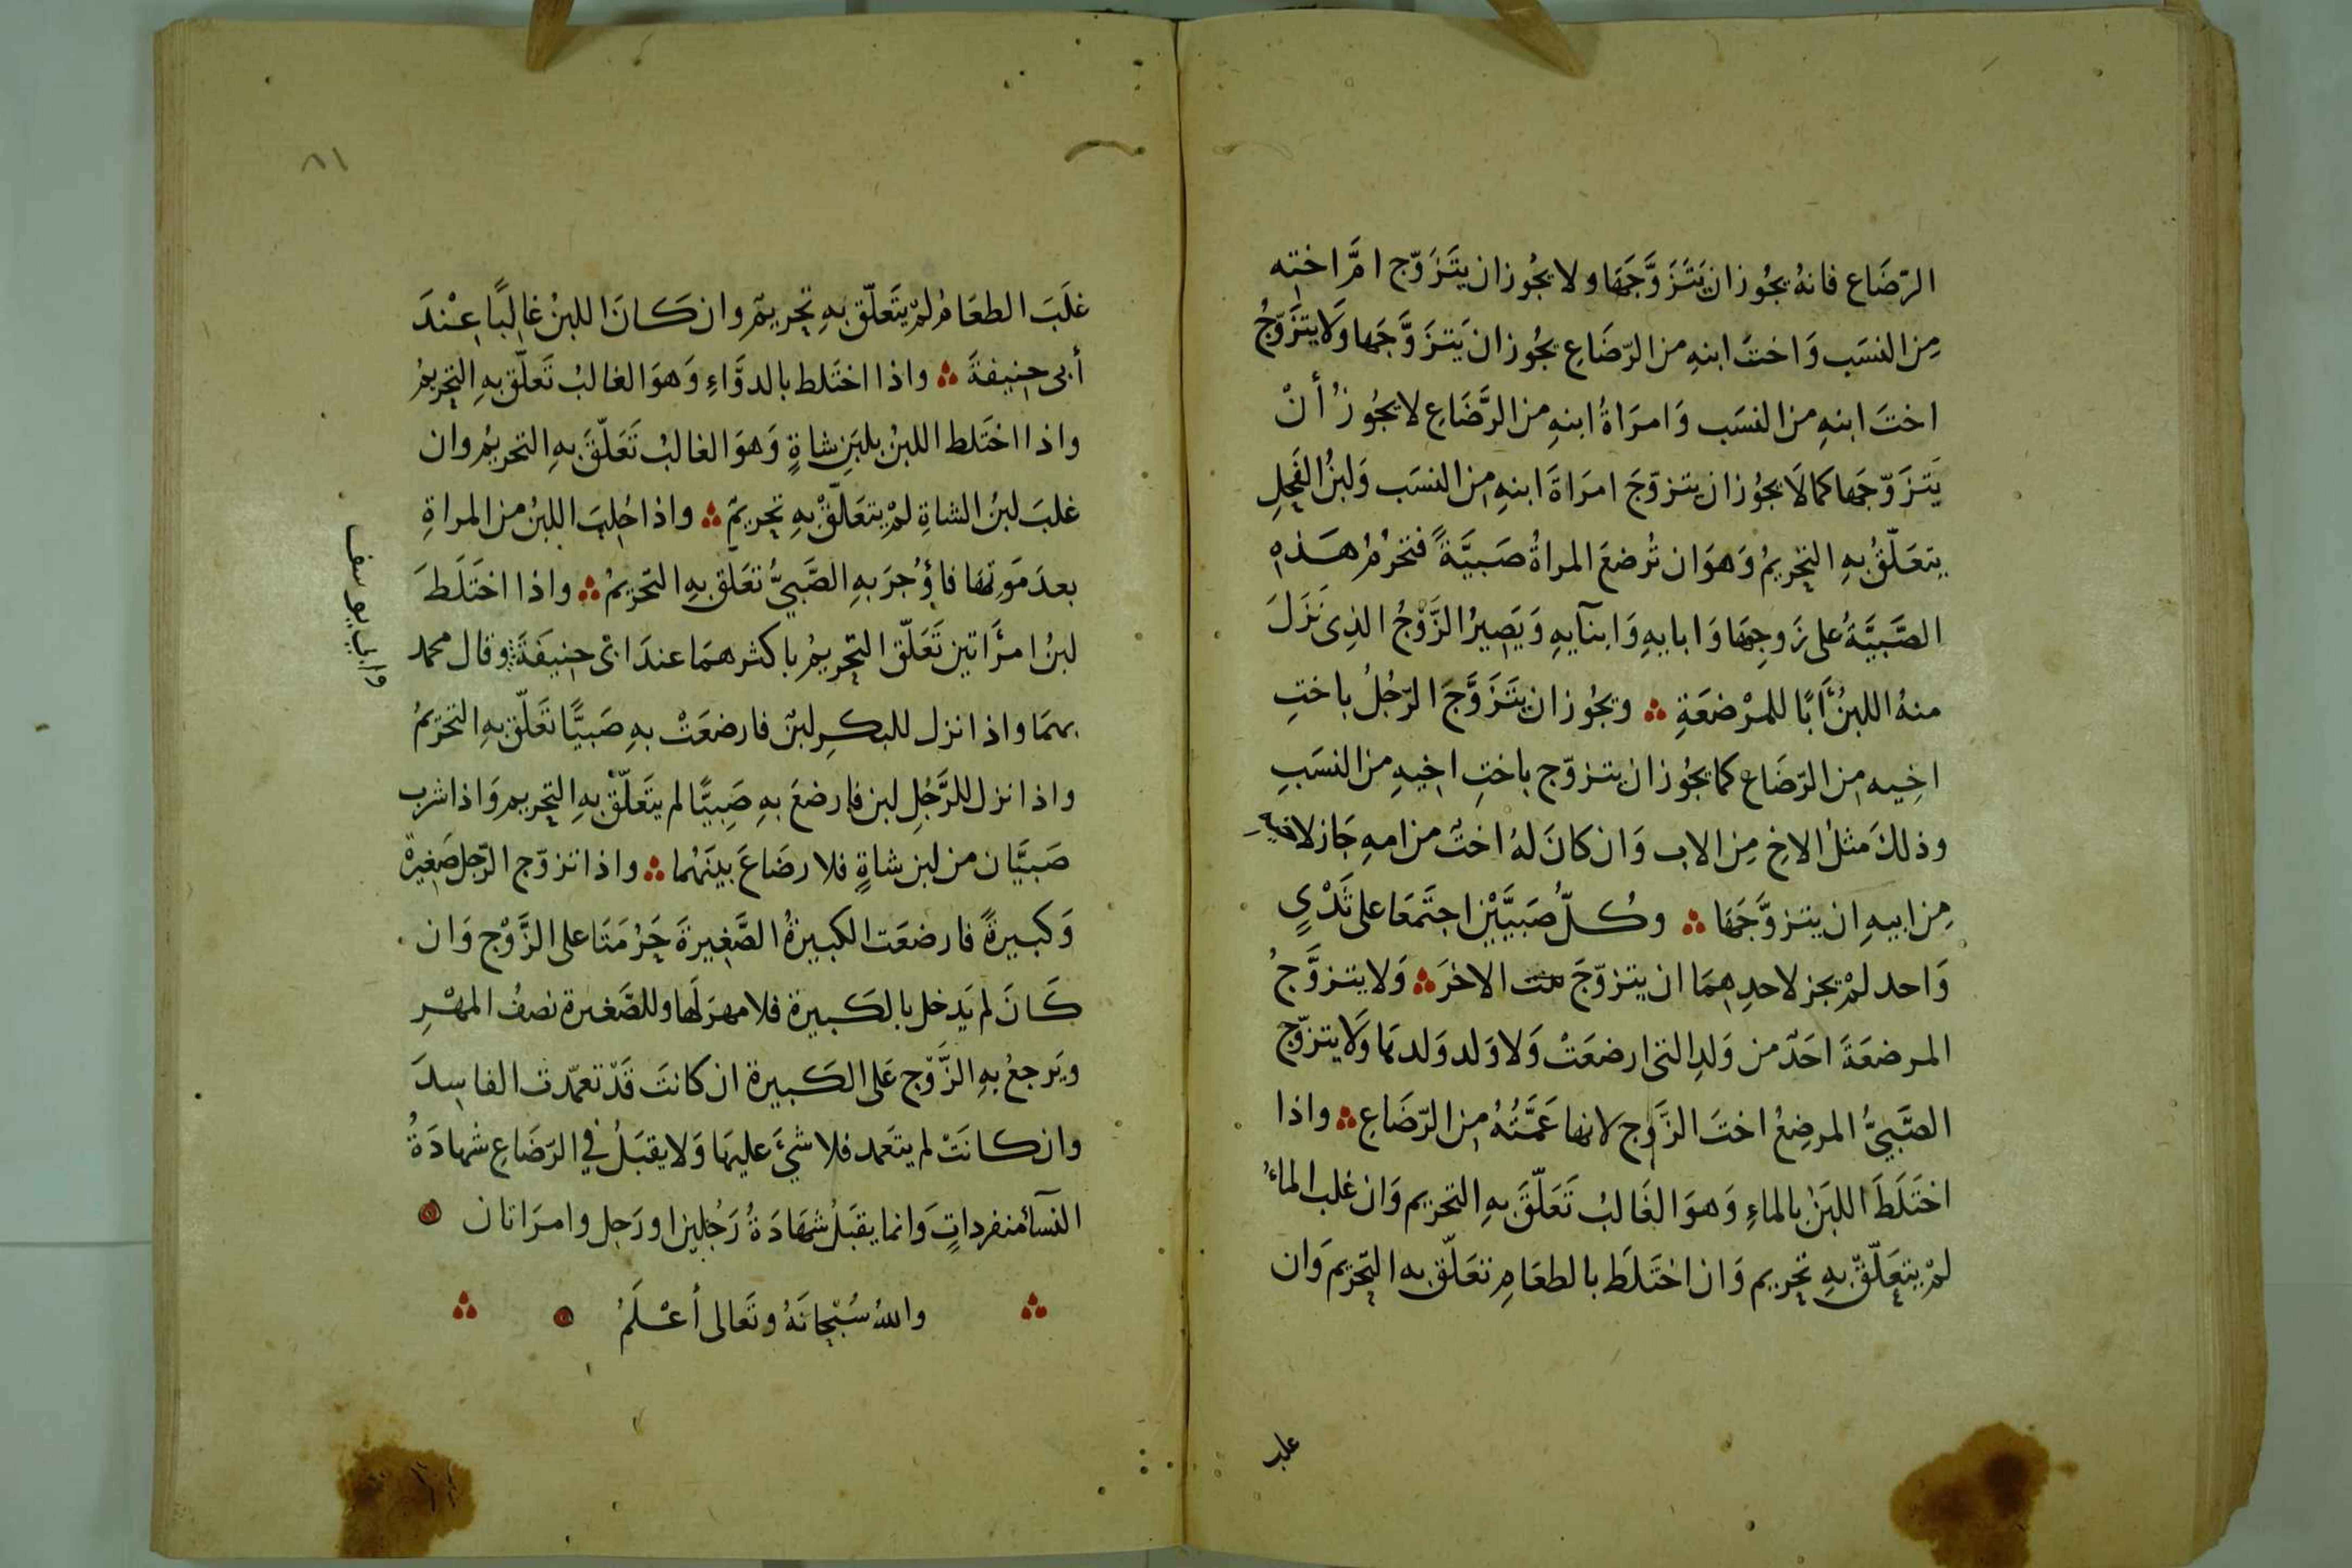 الرّضَاع فانهُ يجُوز ان يَتَزَوَّجَهَا ولا يجُوز ان يتَزَوّج امَّ اختِه
مِن النسَب وَاختَ ابنهِ من الرّضَاعِ يجُوز ان يَتزَوَّجَها وَلا يتزَوّجُ
اختَ ابنهِ من النسَب وَامرَاةُ ابنهِ من الرَّضَاعِ لا يجُوزُ أنْ
يَتزَوّجَها كما لَا يجوُز ان يتزوّجَ امرَاةَ ابنهِ مِن النسَب وَلبنُ الفَحلِ
يتعَلّقُ بهِ التحريمُ وَهوَ ان تُرضعَ المراةُ صَبيَّةً فتحرُمُ هَذهِ
الصَّبيَّةُ على زَوجِهَا وَابايهِ وَابنآيهِ وَيَصِيرُ الزَّوْجُ الذِى نَزَلَ
منهُ اللبنُ أَبًا للمرْضعَةِ ؞ ويجُوز ان يتَزَوَّجَ الرّجُلُ باختِ
اخِيه مِن الرّضَاع كما يجُوز ان يتزوّج باختِ اخِيهِ من النسَبِ
وذلكَ مثلُ الاخِ مِن الاب وَان كانَ لهُ اختٌ من امهِ جَاز لاخيه
مِن ابيهِ ان يتزوَّجَهَا ؞ وكُلّ صَبيَّيْنِ اجتَمَعَا على ثَدْىٍ
وَاحد لمْ يجز لاحدِهِمَا ان يتزوّجَ الاخرَ ؞ وَلا يتزوَّجُ
المرضعَةَ احَدٌ من وَلدِ التى ارضعَتْ وَلا وَلد وَلدهَا وَلا يتزوّج
الصَّبيُّ المرضِعُ اختَ الزَّوج لانها عَمَّتُهُ مِن الرّضَاعِ ؞ واذا
اختَلَطَ اللبَنُ بالماءِ وَهوَ الغَالبُ تَعَلّقَ بهِ التحريم وَان غلب الماءُ
لمْ يتعَلّقْ بهِ تحريم وَان اختَلَطَ بالطعَامِ تعَلّق به التحريمَ وَان
غلب
٨١
غلَبَ الطعَامُ لمْ يتَعَلّق بهِ تحريمٌ وان كَانَ اللبنُ غالِبًا عِنْدَ
أبى حنِيفةَ ؞ واذا اختَلط بالدوَّاءِ وَهوَ الغالبُ تَعلّقَ بهِ التحريمُ
واذا اختَلط اللبنُ بلبَنِ شاةٍ وَهوَ الغالبُ تَعَلّقَ بهِ التحريمُ وان
غلبَ لبنُ الشاةِ لمْ يتعَلّقْ بهِ تحريمٌ ؞ واذا حُلِبَ اللبنُ من المراةِ
بعدَ مَوتهَا فاؤُجرَ بهِ الصَّبيُّ تعَلّق بهِ التحريمُ ؞ واذا اختَلَطَ
لبنُ امرَأتين تَعَلّق التحريمُ باكثرهمَا عندَ ابى حنِيفَةَ وقال محمد
وابي يوسف
بهمَا واذا نزل للبكرِ لبنٌ فارضعَتْ بهِ صَبيًّا تعَلّق بهِ التحريمُ
واذا نزل للرَّجُلِ لبن فارضعَ بهِ صَبِيًّا لم يتَعَلّقْ بهِ التحريم وَاذا شرب
صَبيَّان من لبن شاةٍ فلا رضَاعَ بينَهُما ؞ واذا تزوّج الرّجل صَغِيرةً
وَكبيرةً فارضعَت الكبيرةُ الصَّغِيرةَ حَرُمَتَا على الزَّوْج وَان
كَانَ لم يَدخل بالكَبيرة فلا مهرَ لَها وللصَّغيرة نصفُ المهْرِ
ويَرجعُ بهِ الزَّوّج عَلى الكَبيرة ان كانتَ قَدْ تعمّدت الفاسِدَ
وان كانَتْ لم يتعَمد فلا شيْءَ عليهَا وَلا يقبَلُ في الرّضَاعِ شهادَةُ
النّسآءُ منفرداتٍ وَانما يقبَلُ شهَادَةُ رَجُلين او رَجل وامرَاتان
والله سُبْحانَهُ وتَعالى أعْلَمُ